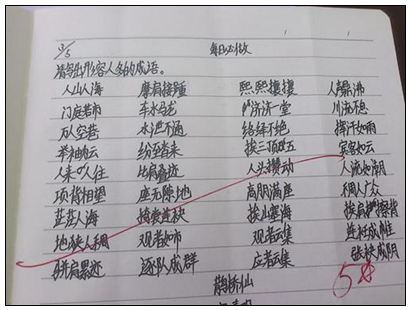 9/5 每日必做
请写出形容人多的成语。
人山人海 摩肩接踵 熙熙攘攘 人声鼎沸
门庭若市 车水马龙 济济一堂 川流不息
万人空巷 水泄不通 络绎不绝 挥汗如雨
举袖如云 纷至沓来 挨三顶五 宾客如云
人来人往 比肩叠迹 人头攒动 人流如潮
项背相望 座无隙地 高朋满座 稠人广众
茫茫人海 摘袂连袂 挨山塞海 挨肩擦背
地狭人稠 观者如市 观者云集 连衽成帷
骈肩累迹 逐队成群 应者云集 张袂成阴
鹊桥仙
5